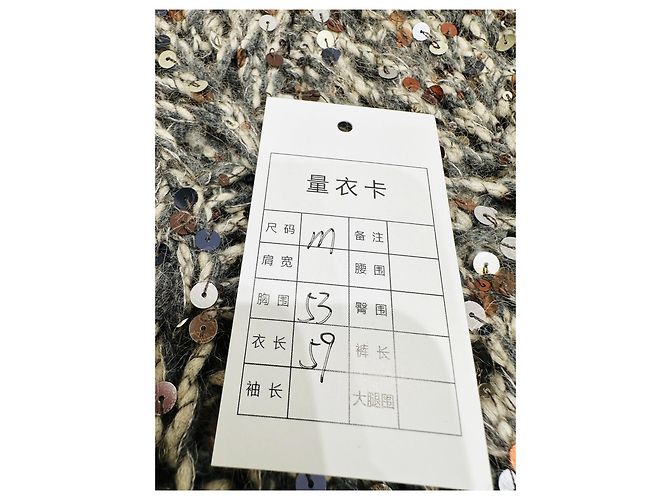 量衣卡
尺码 m 备注
肩宽 腰围
胸围 53 臀围
衣长 59 裤长
袖长 大腿围